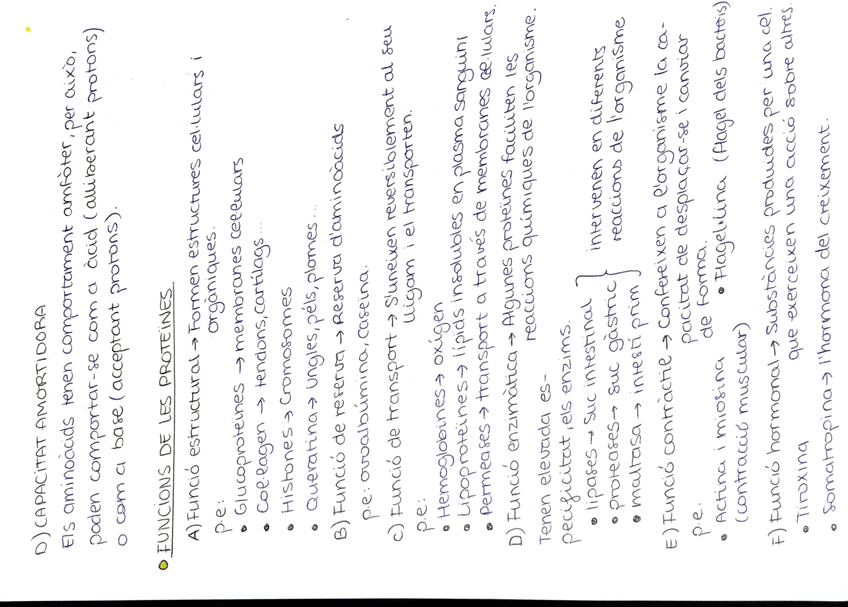 D) CAPACITAT AMORTIDORA
Els aminoàcids tenen comportament amfòter, per això,
poden comportar-se com a àcid (alliberant protons)
o com a base (acceptant protons).
• FUNCIONS DE LES PROTEÏNES
A) Funció estructural → Formen estructures cel·lulars i
orgàniques.
p.e:
• Glucoproteïnes → membranes cel·lulars
• Col·lagen → tendons, cartílags...
• Histones → Cromosomes
• Queratina → Ungles, pèls, plomes...
B) Funció de reserva → Reserva d'aminoàcids
p.e: ovoalbúmina, caseïna.
C) Funció de transport → S'uneixen reversiblement al seu
lligam i el transporten.
p.e:
• Hemoglobines → oxígen
• Lipoproteïnes → lípids insolubles en plasma sanguini
• Permeases → transport a través de membranes cel·lulars.
D) Funció enzimàtica → Algunes proteïnes faciliten les
reaccions químiques de l'organisme.
Tenen elevada es-
pecificitat, els enzims.
• lipases → Suc intestinal
• proteases → suc gàstric
• maltasa → intestí prim
intervenen en diferents
reaccions de l'organisme
E) Funció contràctil → Confereixen a l'organisme la ca-
pacitat de desplaçar-se i canviar
de forma.
p.e.
• Actina i miosina
(contracció muscular)
• Flagel·lina (flagel dels bacteris)
F) Funció hormonal → Substàncies produïdes per una cèl.
que exerceixen una acció sobre altres.
• Tiroxina
• Somatropina → l'hormona del creixement.